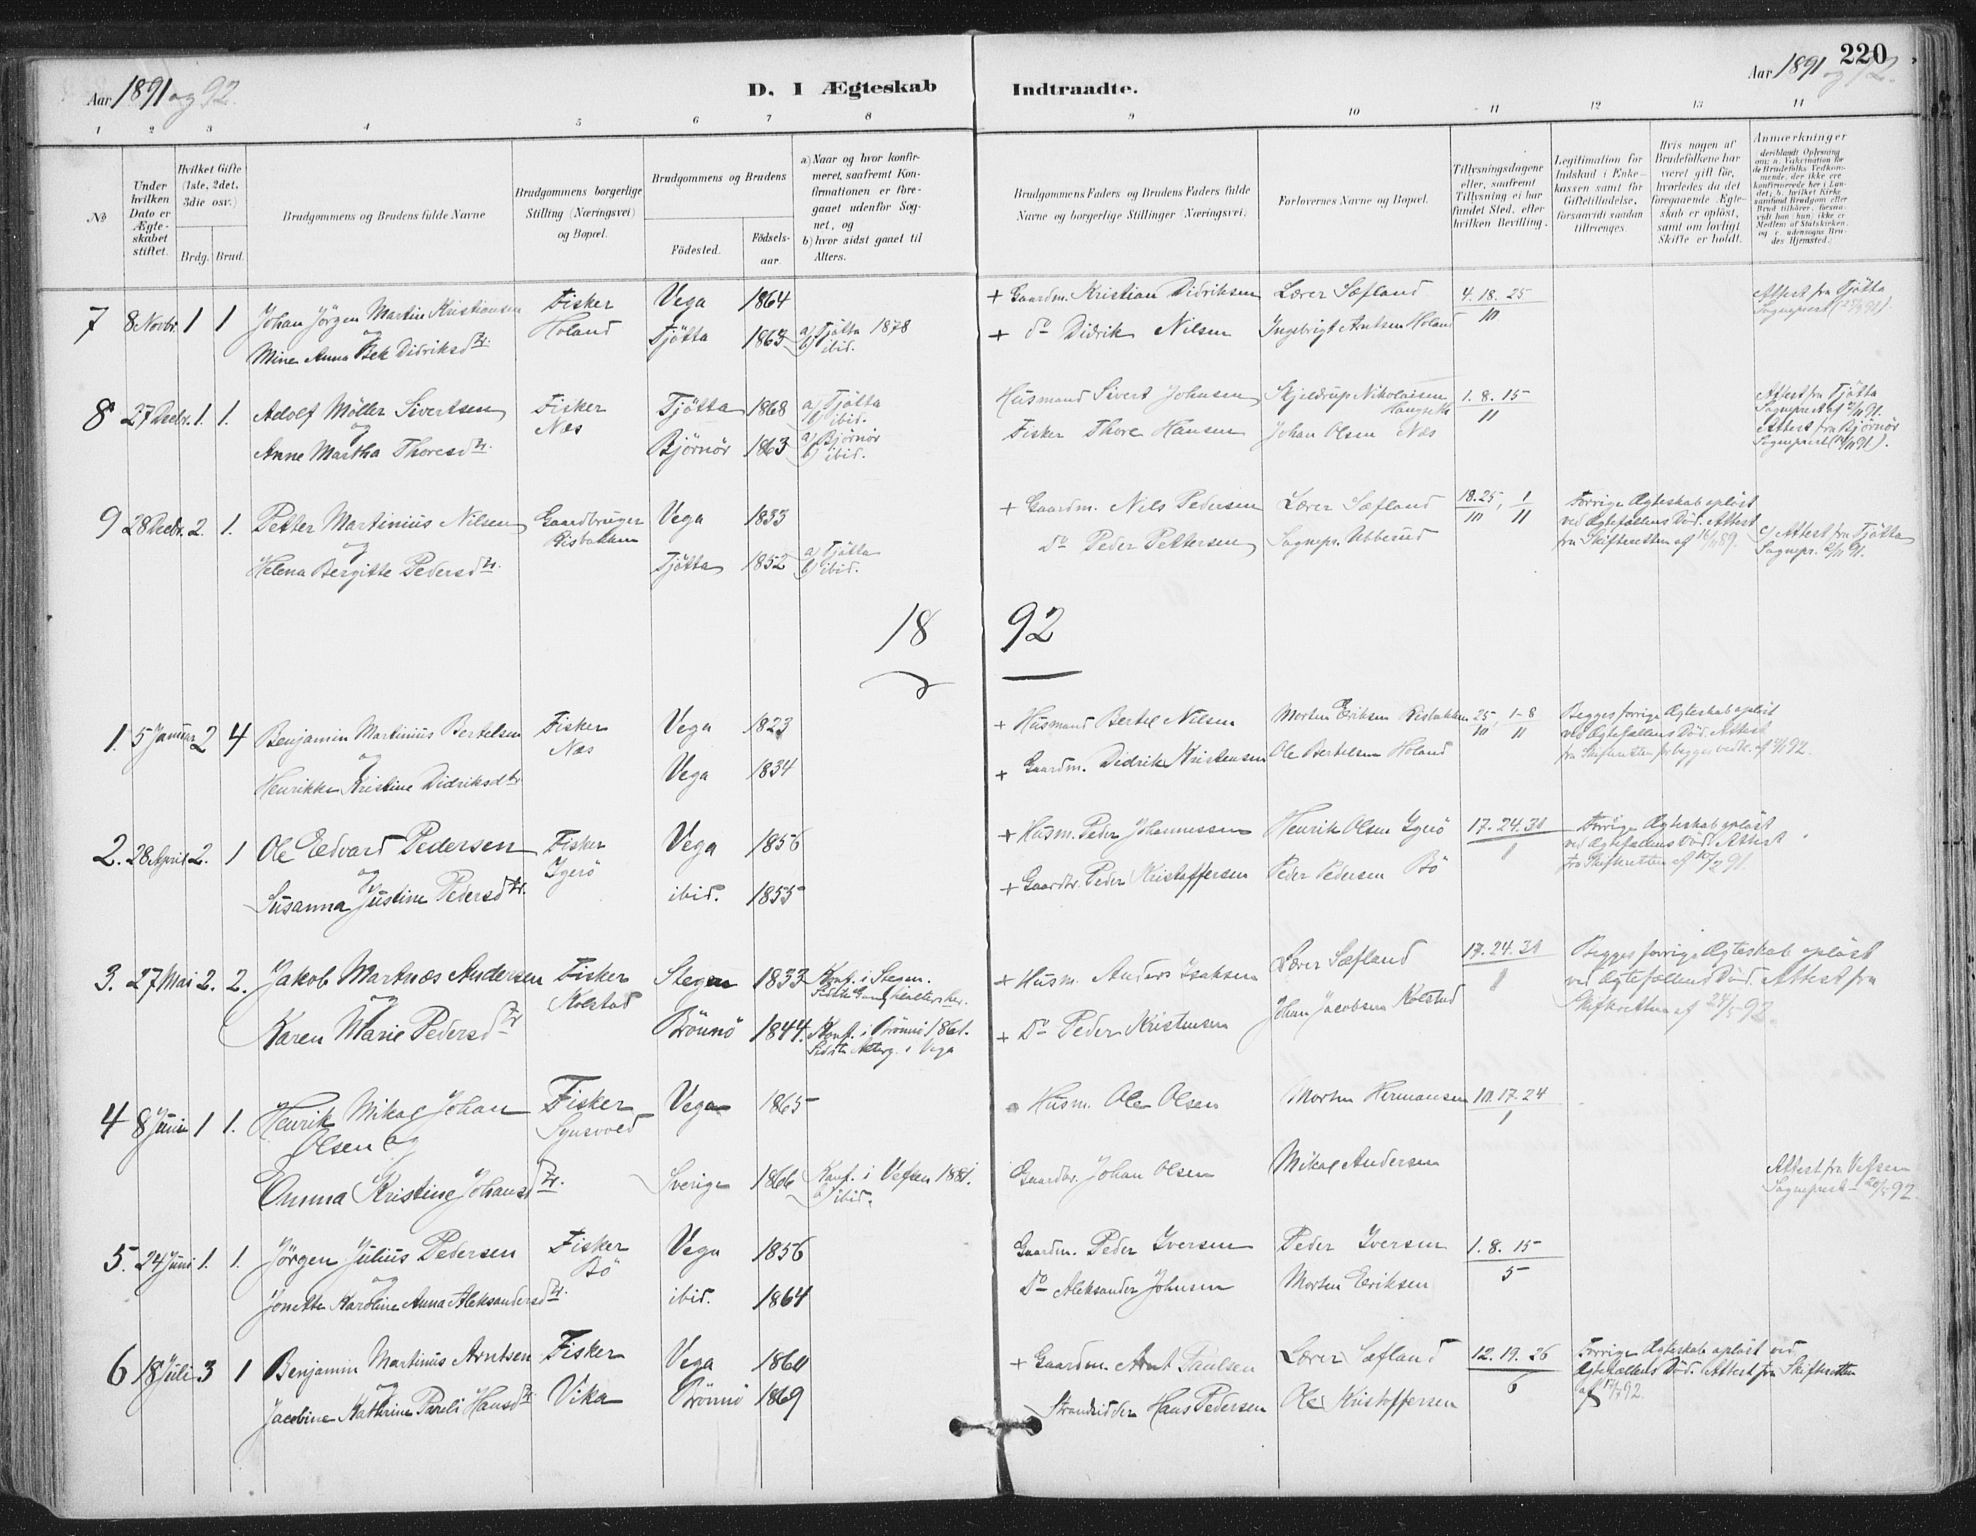 Aar 1891 og 92.
D. I Ægteskab Indtraadte.
220
Aar 1891 og 92.
1 2 3 4 5 6 7 8 9 10 11 12 13 14
No
Under hvilken Dato er Ægteskabet stiftet.
Hvilket Gifte (1ste, 2det, 3die osv.)
Brdg. Brud.
Brudgommens og Brudens fulde Navne
Brudgommens borgerlige Stilling (Næringsvei) og Bopæl.
Brudgommens og Brudens
Födested. Födselsaar.
a) Naar og hvor konfirmeret, saafremt Konfirmationen er foregaaet udenfor Sognet, og
b) hvor sidst gaaet til Alters.
Brudgommens Faders og Brudens Faders fulde Navne og borgerlige Stillinger (Næringsvei).
Forlovernes Navne og Bopæl.
Tillysningsdagene eller, saafremt Tillysning ei har fundet Sted, efter hvilken Bevilling.
Legitimation for Indskud i Enkekassen samt for Giftetilladelse, forsaavidt saadan tiltrænges.
Hvis nogen af Brudefolkene har været gift för, hvorledes da det foregaaende Ægteskab er oplöst, samt om lovligt Skifte er holdt.
Anmærkninger
7 8 Novbr. 1 1 Johan Jörgen Martin Kristiansen Fisker Vega 1864 + Gaardm. Kristian Didriksen Lærer Sæfland 4. 18. 25 Attest fra Tjötta
og Holand 10 Sognepræst
Mine Anna Bek Didriksdtr. Tjötta 1863 a) Tjötta 1878 + do Didrik Nilsen Ingebrigt Antsen Holand
b) ibid.
8 27 Decbr. 1. 1. Adolf Möller Sivertsen Fisker Tjötta 1868 a) Tjötta Husmand Sivert Johnsen Skjeldrup Nikolaisen 1. 8. 15 Attest fra Tjötta
og Næs b) ibid. 11
Anne Martha Thoresdtr. Björnör 1863 a) Björnör Fisker Thore Hansen Johan Olsen Næs Attest fra Björnör
b) ibid.
9 28 Decbr. 2. 1. Petter Martinius Nilsen Gaardbruger Vega 1833 + Gaardm. Nils Pedersen Lærer Sæfland 18. 25, 1 Forrige Ægteskab oplöst
og Risbakken 10 11 ved Ægtefællens Död. Attest
Helena Bergitte Pedersdtr. Tjötta 1852 a) Tjötta Do Peder Pettersen Sognepr. Ubberud fra Skifteretten af c) Attest fra Tjötta
b) ibid. Sognepr.
18 92
1. 5 Januar 2 4 Benjamin Martinius Bertelsen Fisker Vega 1823 + Husmand Bertel Nilsen Morten Eriksen Risbakken 25, 1-8 Begges forrige Ægteskab oplöst
og Næs 10 11 ved Ægtefællens Död. Attest
Henrikke Kristine Didriksdtr. Vega 1834 + Gaardm. Didrik Kristensen Ole Bertelsen Holand fra Skifteretten for begges vedk.
2. 28 April 2. 1 Ole Edvard Pedersen Fisker Vega 1856 + Husm. Peder Johannessen Henrik Olsen Ygerö 17. 24. 31 Forrige Ægteskab oplöst
og Ygerö 1 ved Ægtefællens Död. Attest
Susanna Justine Pedersdtr. ibid. 1855 + Gaardbr. Peder Kristoffersen Peder Pedersen Bö fra Skifteretten af
3. 27 Mai 2. 2. Jakob Martnæs Andersen Fisker Stegen 1833 Konf. i Stegen. + Husm. Anders Isaksen Lærer Sæfland 17. 24. 31 Begges forrige Ægteskab oplöst
og Kolstad 1 ved Ægtefællens Död. Attest fra
Karen Marie Pedersdtr. Brönnö 1844. Konf. i Brönnö 1861. + Do Peder Kristensen Johan Jacobsen Kolstad Skifteretten af
Sidste Alterg. i Vega
4 8 Juni 1 1. Henrik Mikal Johan Fisker Vega 1865 Husm. Ole Olsen Morten Hermansen 10. 17. 24
Olsen og 1
Emma Kristine Johansdtr. Sverige 1866 Konf. i Vefsen 1881. Gaardbr. Johan Olsen Mikal Andersen Attest fra Vefsen
b) ibid. Sognepræst
5. 24 Juni 1. 1. Jörgen Julius Pedersen Fisker Vega 1856 Gaardm. Peder Iversen Peder Iversen 1. 8. 15
og Bö 5
Jonette Karoline Anna Aleksandersdtr. ibid. 1864 Do Aleksander Johnsen Morten Eriksen
6 18 Juli 3 1 Benjamin Martinus Arntsen Fisker Vega 1860 + Gaardm. Arnt Paulsen Lærer Sæfland 12. 19. 26 Forrige Ægteskab oplöst ved
og 6 Ægtefællens Död. Attest fra Skifteretten
Jacobine Kathrine Pareli Hansdtr. Vika Brönnö 1869 Strandsidder Hans Pedersen Ole Kristoffersen